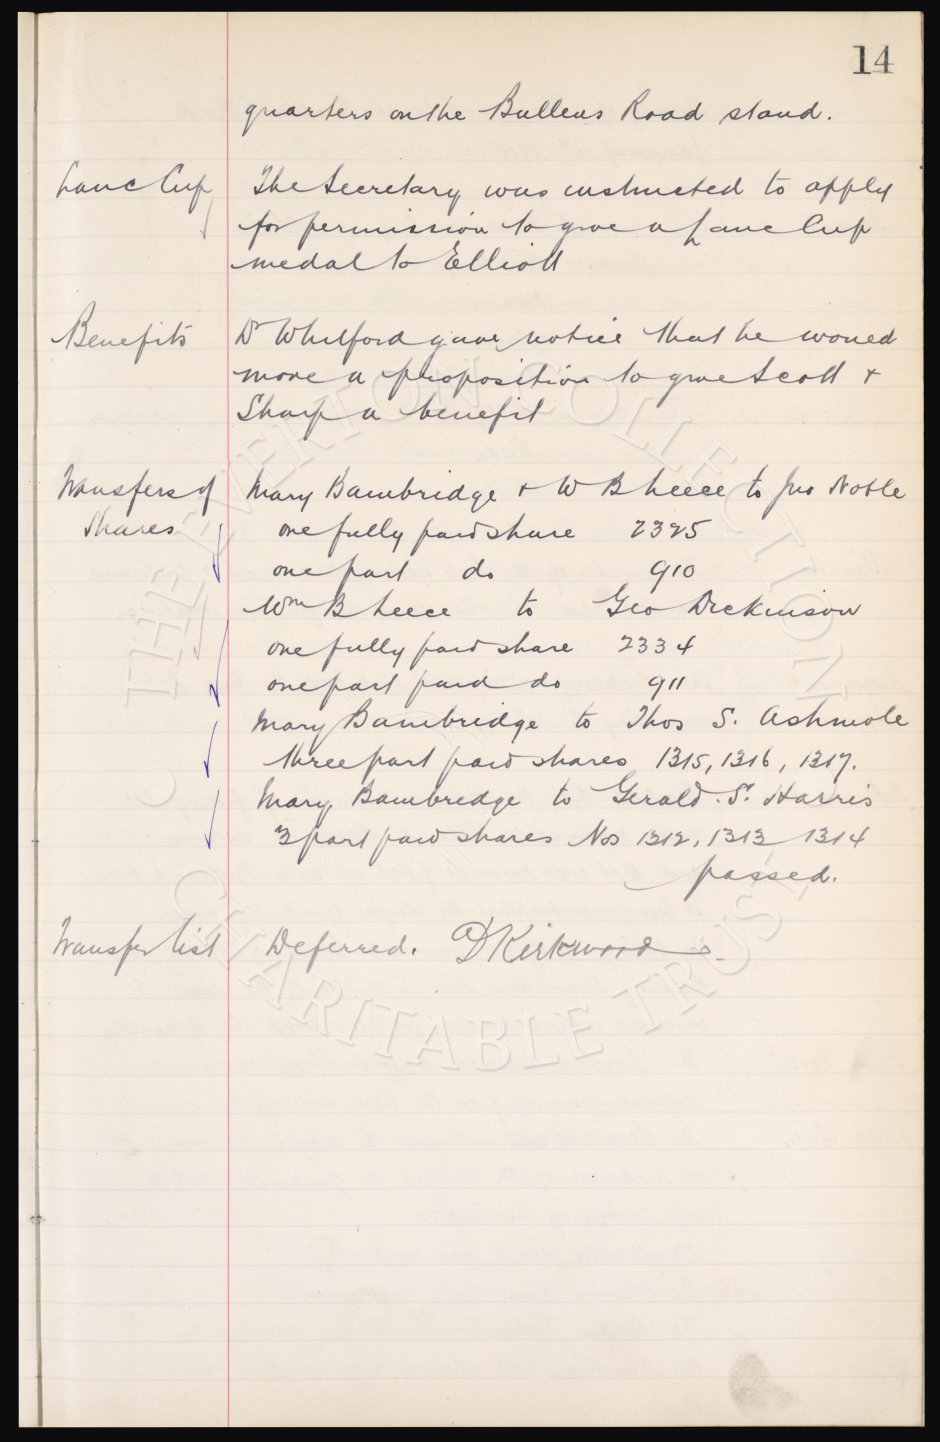 14
quarters on the Bullens Road stand.
Lanc Cup The Secretary was instructed to apply
for permission to give a Lanc Cup
medal to Elliott
Benefits Dr Whitford gave notice that he would
move a proposition to give Scott &
Sharp a benefit
Transfers of Mary Bambridge & W B Leece to Jno Noble
Shares one fully paid share 2325
one part do 910
Wm B Leece to Geo Dickinson
one fully paid share 2334
one part paid do 911
Mary Bambridge to Thos S. Ashmole
three part paid shares 1315, 1316, 1317.
Mary Bambridge to Gerald. S. Harris
3 part paid shares Nos 1312, 1313, 1314
passed.
Transfer List Deferred. D Kirkwood
© THE EVERTON COLLECTION
CHARITABLE TRUST